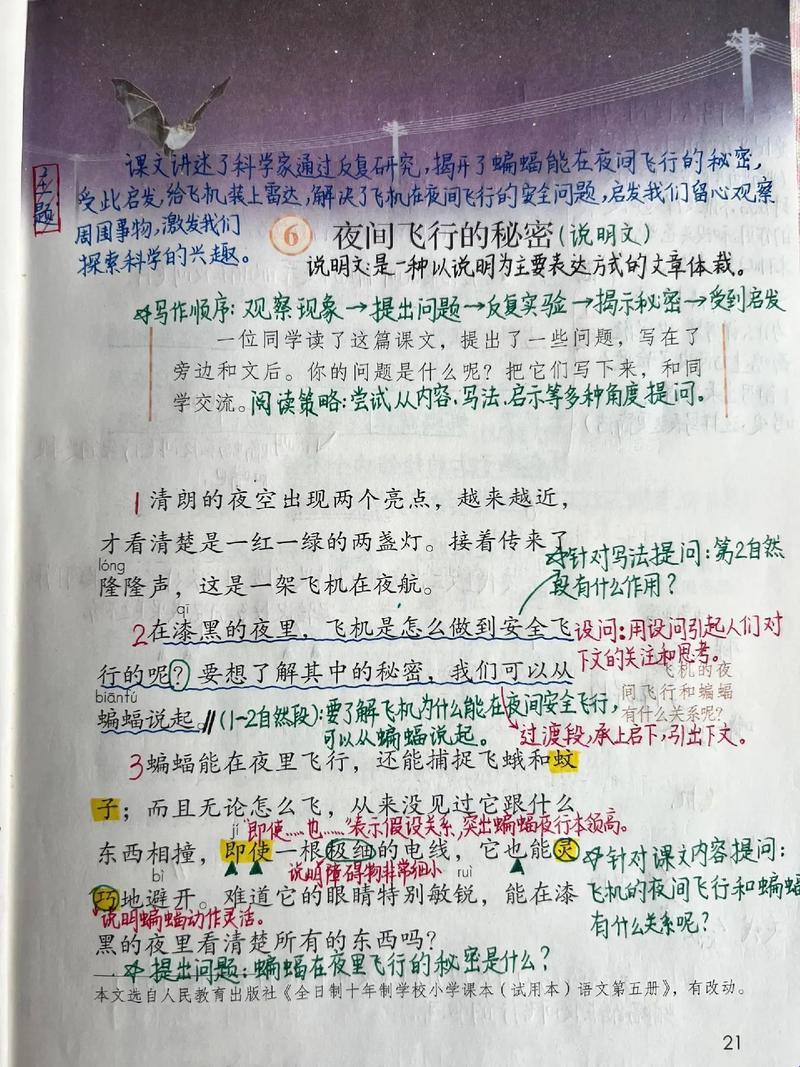 主题
课文讲述了科学家通过反复研究，揭开了蝙蝠能在夜间飞行的秘密，
受此启发，给飞机装上雷达，解决了飞机在夜间飞行的安全问题，启发我们留心观察
周围事物，激发我们
探索科学的兴趣。
6 夜间飞行的秘密(说明文)
说明文：是一种以说明为主要表达方式的文章体裁。
写作顺序：观察现象→提出问题→反复实验→揭示秘密→受到启发
一位同学读了这篇课文，提出了一些问题，写在了
旁边和文后。你的问题是什么呢？把它们写下来，和同
学交流。阅读策略：尝试从内容、写法、启示等多种角度提问。
1 清朗的夜空出现两个亮点，越来越近，
才看清楚是一红一绿的两盏灯。接着传来了
针对写法提问：第2自然
段有什么作用？
lóng
隆隆声，这是一架飞机在夜航。
qī
2在漆黑的夜里，飞机是怎么做到安全飞
设问：用设问引起人们对
下文的关注和思考。
行的呢？要想了解其中的秘密，我们可以从
飞机的夜
间飞行和蝙蝠
有什么关系呢？
biānfú
蝙蝠说起。‖(1-2自然段)：要了解飞机为什么能在夜间安全飞行，
可以从蝙蝠说起。
过渡段，承上启下，引出下文。
3蝙蝠能在夜里飞行，还能捕捉飞蛾和蚊
子；而且无论怎么飞，从来没见过它跟什么
jí
“即使……也……”表示假设关系，突出蝙蝠夜行本领高。
东西相撞，即使一根极细的电线，它也能灵
针对课文内容提问：
飞机的夜间飞行和蝙蝠
有什么关系呢？
bì
说明障碍物非常细小
ruì
巧地避开。难道它的眼睛特别敏锐，能在漆
说明蝙蝠动作灵活。
黑的夜里看清楚所有的东西吗？
提出问题：蝙蝠在夜里飞行的秘密是什么？
本文选自人民教育出版社《全日制十年制学校小学课本（试用本）语文第五册》，有改动。
21